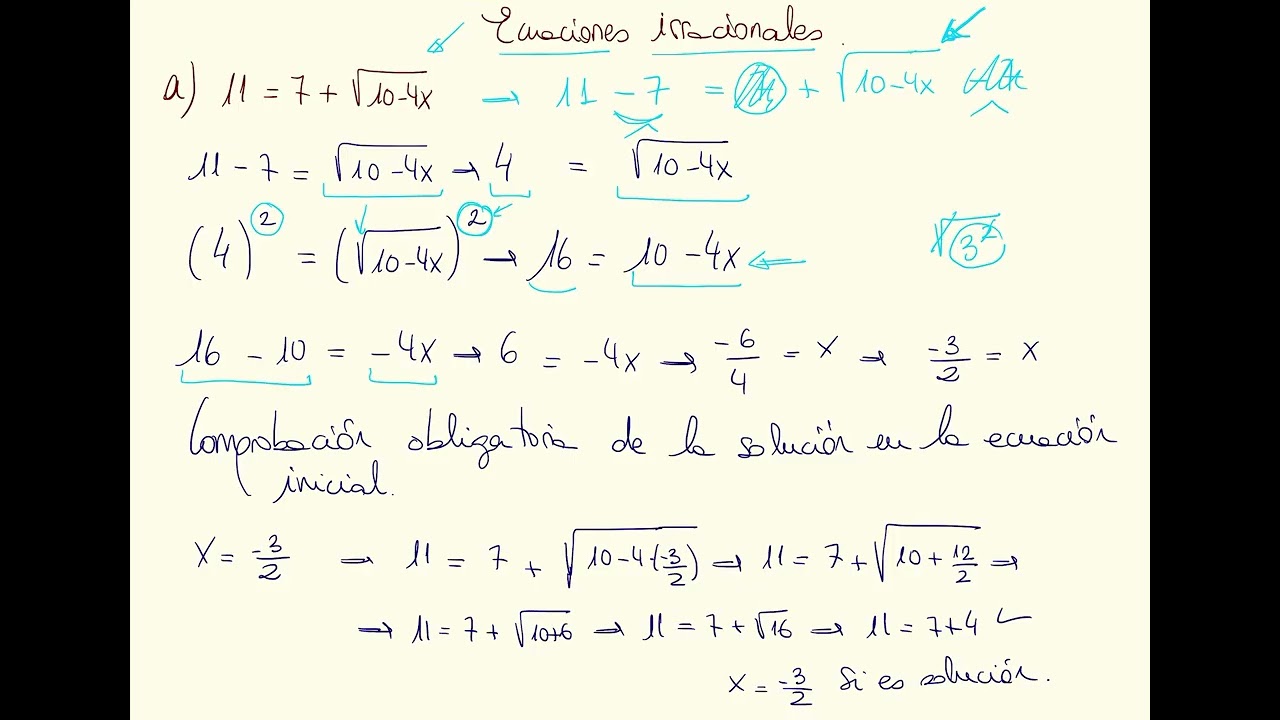 Ecuaciones irracionales
a) 11 = 7 + √(10-4x) → 11 - 7 = + √(10-4x)
11 - 7 = √(10-4x) → 4 = √(10-4x)
(4)² = (√(10-4x))² → 16 = 10 - 4x ← √(3²)
16 - 10 = -4x → 6 = -4x → -6/4 = x → -3/2 = x
Comprobación obligatoria de la solución en la ecuación
inicial.
x = -3/2 → 11 = 7 + √(10-4·(-3/2)) → 11 = 7 + √(10+12/2) →
→ 11 = 7 + √(10+6) → 11 = 7 + √16 → 11 = 7+4 ✓
x = -3/2 Si es solución.